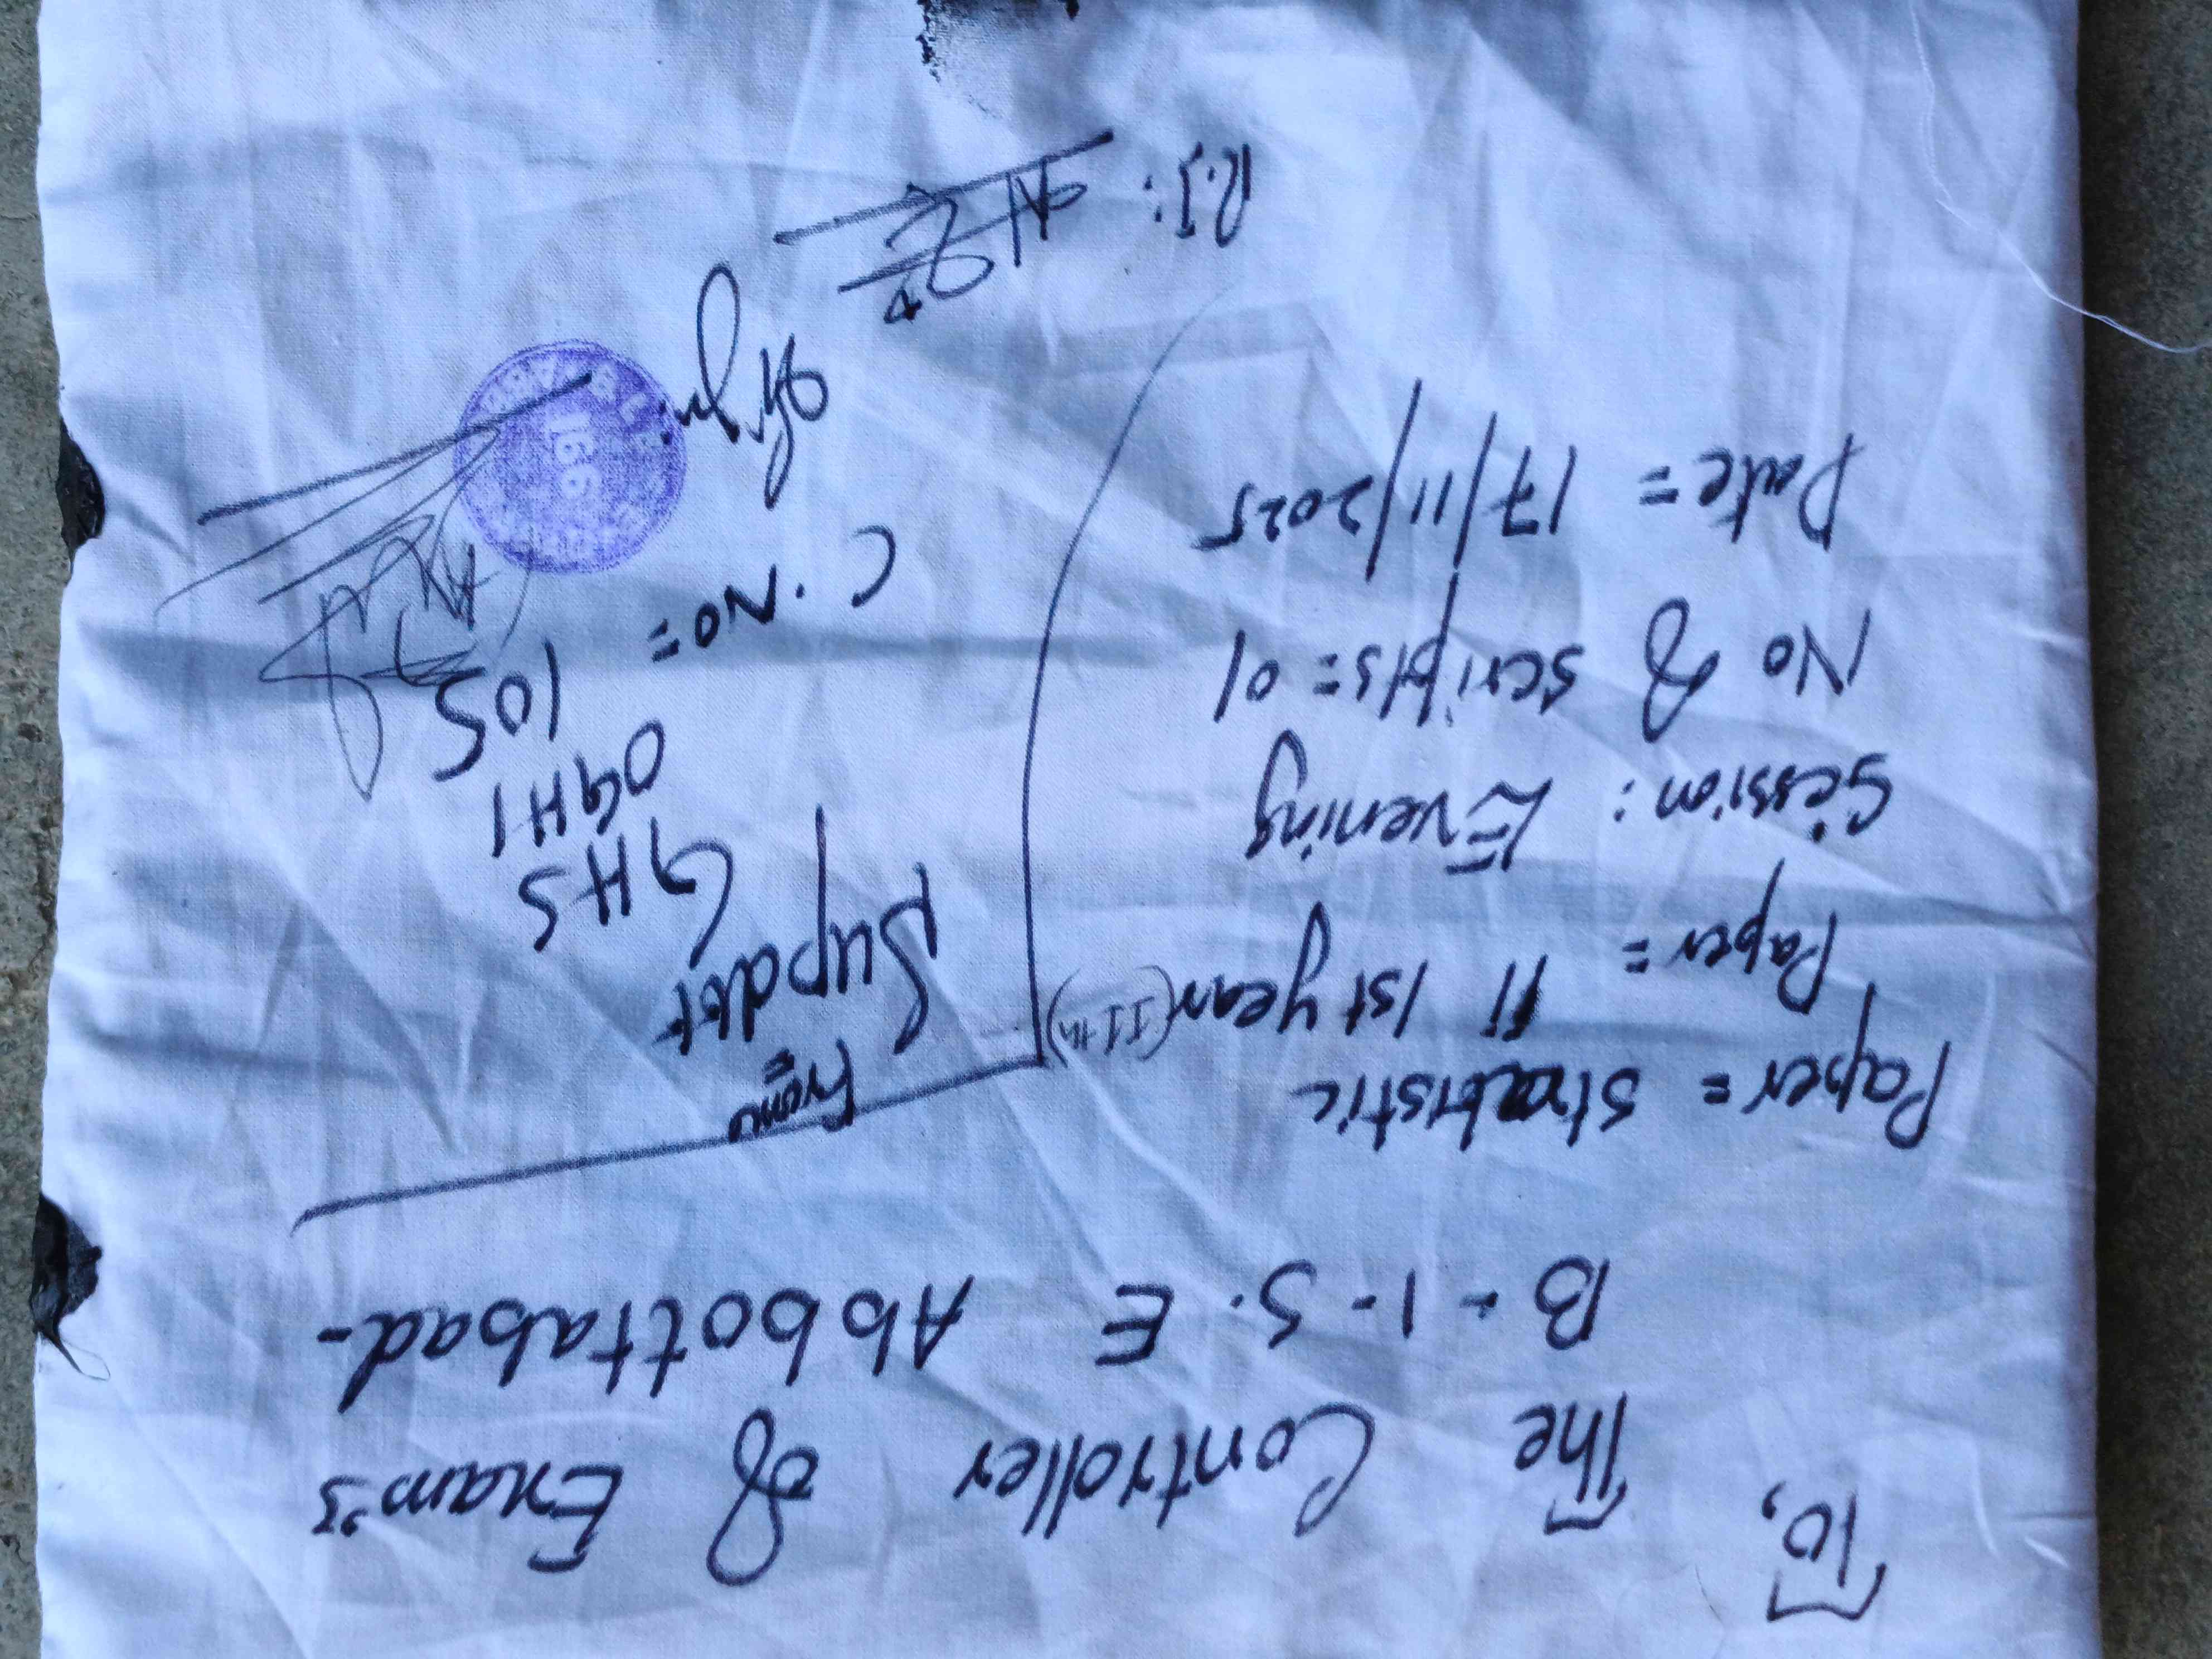 To,
The Controller of Exam's
B-1-S.E Abbottabad-
Paper = Statistic
Paper = 11 1st year (11th)
Session: Evening
No of scripts = 01
Date = 17/11/2025
R.I:
From
Supdtt
GHS
OGHI
C.No = 105
166